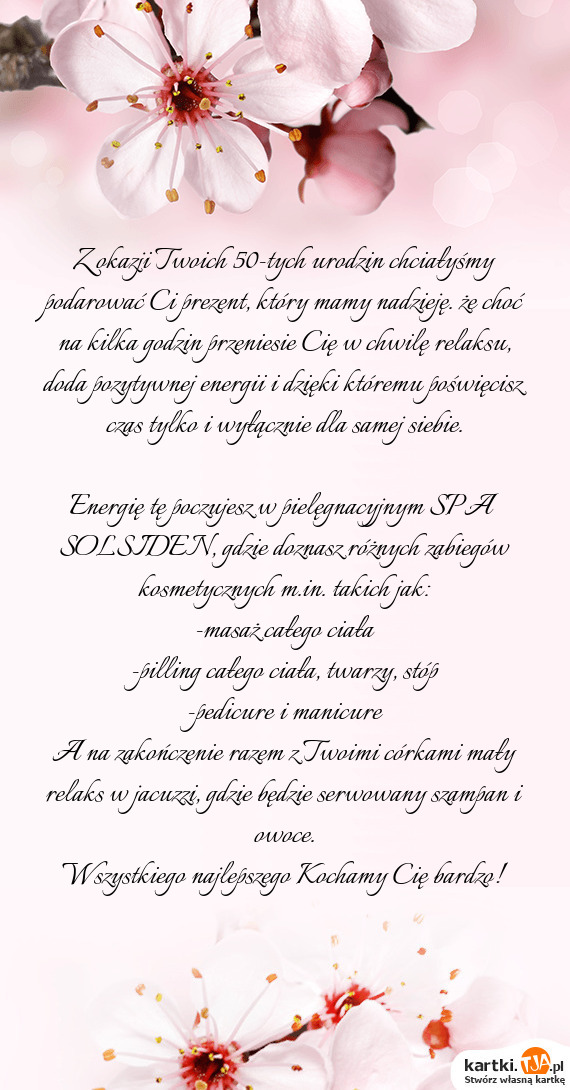 Z okazji Twoich 50-tych urodzin chciałyśmy
podarować Ci prezent, który mamy nadzieję. że choć
na kilka godzin przeniesie Cię w chwilę relaksu,
doda pozytywnej energii i dzięki któremu poświęcisz
czas tylko i wyłącznie dla samej siebie.
Energię tę poczujesz w pielęgnacyjnym SPA
SOLSIDEN, gdzie doznasz różnych zabiegów
kosmetycznych m.in. takich jak:
-masaż całego ciała
-pilling całego ciała, twarzy, stóp
-pedicure i manicure
A na zakończenie razem z Twoimi córkami mały
relaks w jacuzzi, gdzie będzie serwowany szampan i
owoce.
Wszystkiego najlepszego Kochamy Cię bardzo!
kartki.TJA.pl
Stwórz własną kartkę